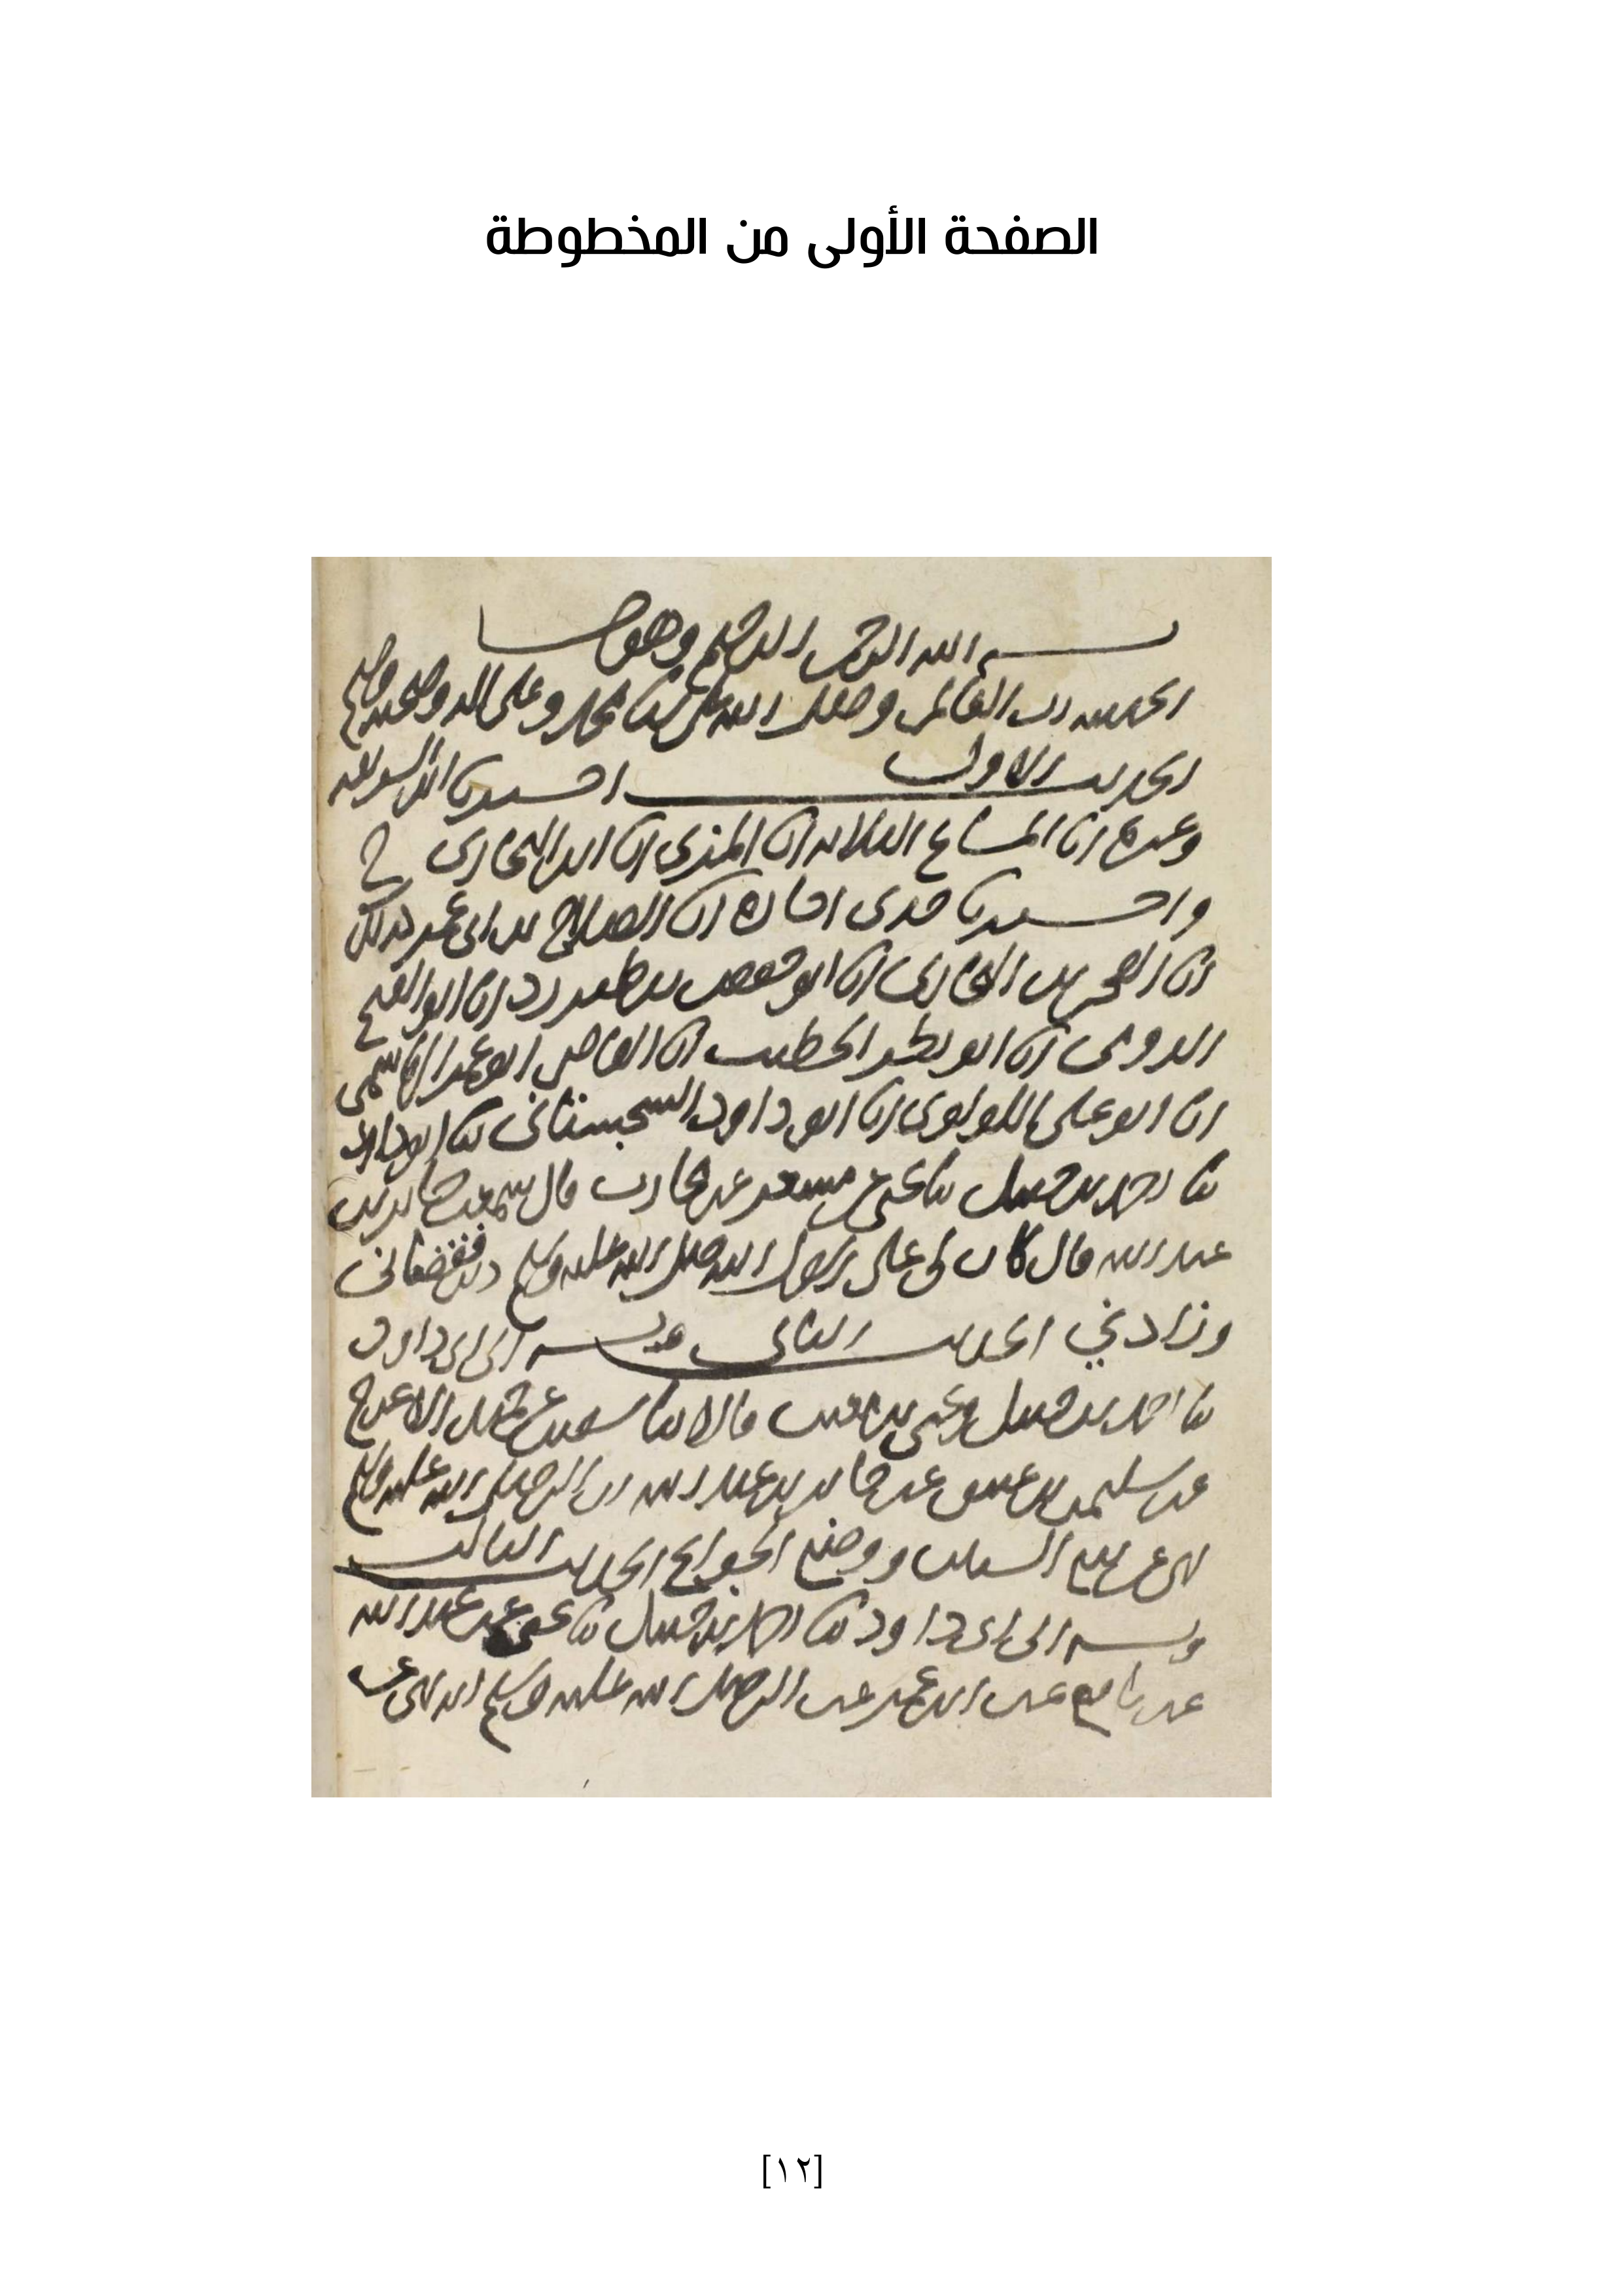 الصفحة الأولى من المخطوطة
بسم الله الرحمن الرحيم وهو حسبنا
الحمد لله رب العالمين وصلى الله على سيدنا محمد وعلى اله وصحبه وسلم
الحديث الاول اخبرنا ابن
وغيره انا المشايخ الثلاثة انا المزي انا ابن البخاري ح
واخبرنا جدي اجازة انا الصلاح بن ابي عمر كذلك
انا الفخر بن البخاري انا ابو حفص بن طبرزد انا ابو الفتح
الدومي انا ابو بكر الخطيب انا القاضي ابو عمر الهاشمي
انا ابو علي اللولوي انا ابو داود السجستاني ثنا ابو داود
ثنا احمد بن حنبل ثنا يحيى عن مسعر عن محارب قال سمعت جابر بن
عبد الله قال كان لي على رسول الله صلى الله عليه وسلم دين فقضاني
وزادني الحديث الثاني وبه الى ابي داود
ثنا احمد بن حنبل ويحيى بن معين قالا ثنا سفين عن حميد الاعرج
عن سليمن بن عتيق عن جابر بن عبد الله ان النبي صلى الله عليه وسلم
نهى عن بيع السنين ووضع الجوايح الحديث الثالث
وبه الى ابي داود ثنا احمد بن حنبل ثنا يحيى عن عبيد الله
عن نافع عن ابن عمر عن النبي صلى الله عليه وسلم انه نهى عن
[١٢]